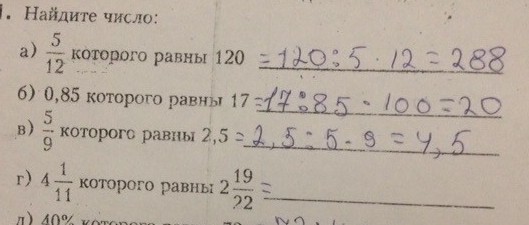 1. Найдите число:
а) 5/12 которого равны 120 = 120 : 5 · 12 = 288
б) 0,85 которого равны 17 = 17 : 85 · 100 = 20
в) 5/9 которого равны 2,5 = 2,5 : 5 · 9 = 4,5
г) 4 1/11 которого равны 2 19/22 =
д) 40% которого